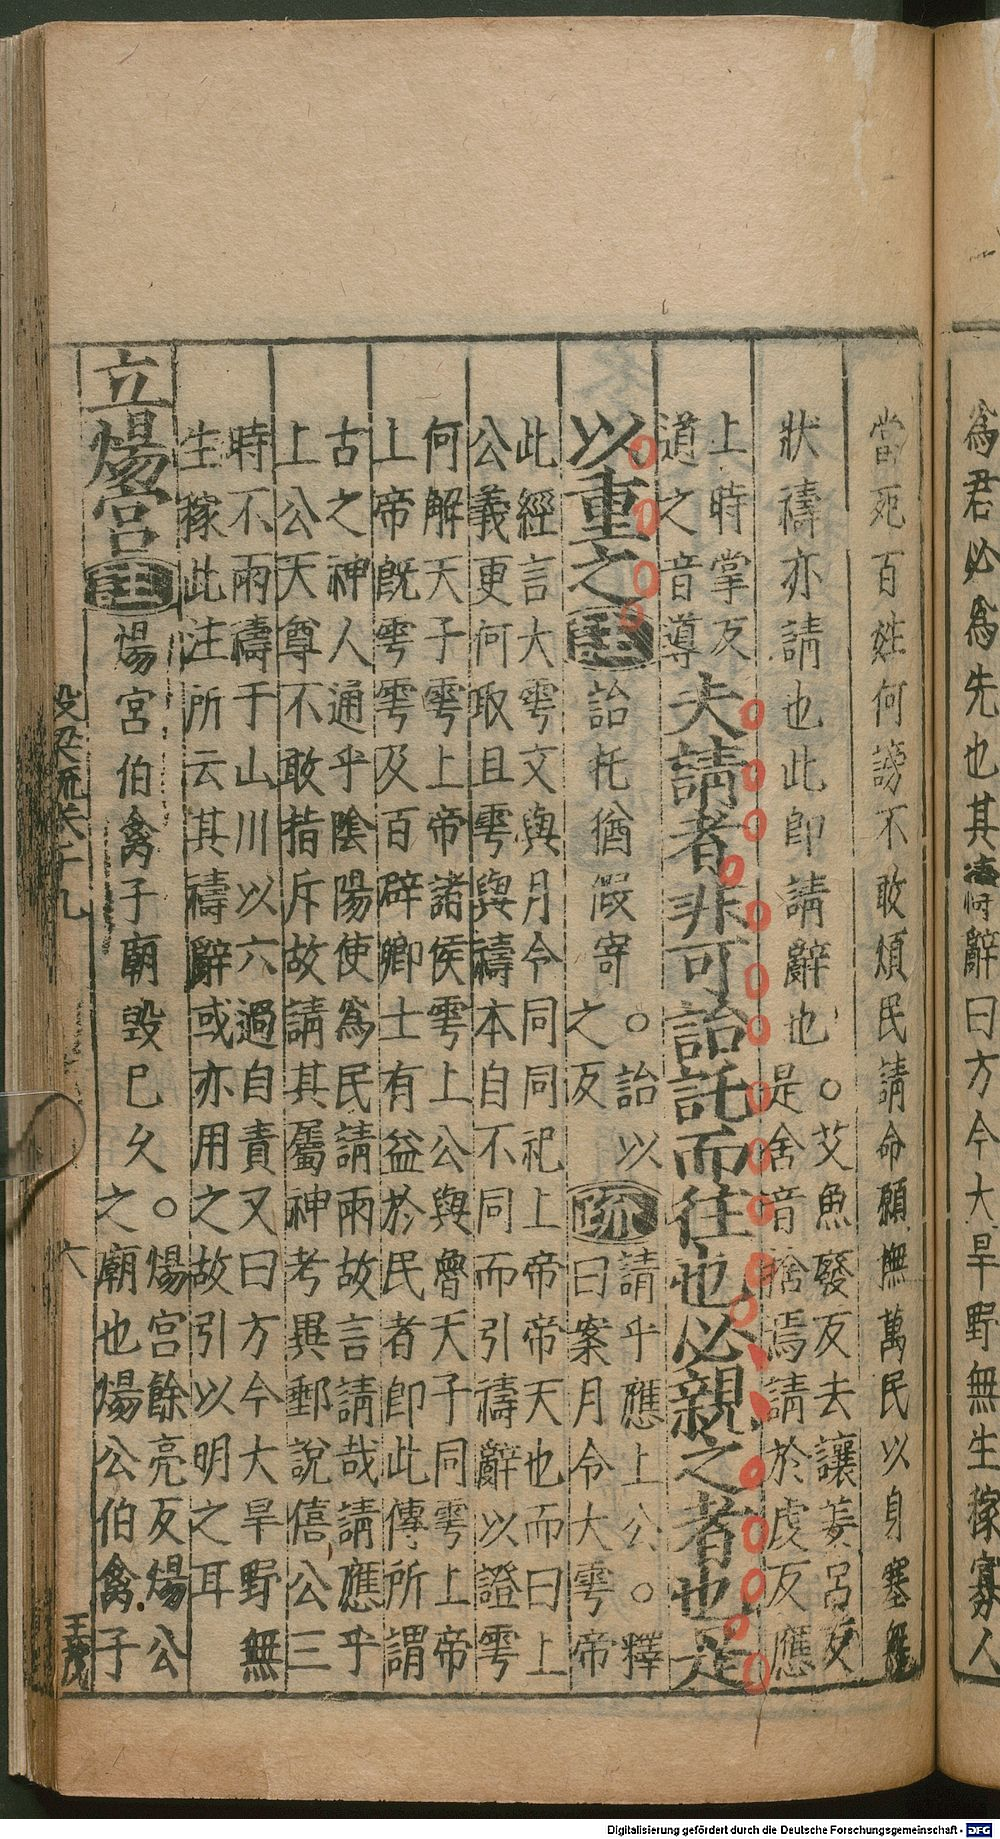 爲君必爲先也其禱辭曰方今大旱野無生稼寡人
當死百姓何謗不敢煩民請命願撫萬民以身塞無
狀禱亦請也此即請辭也○艾魚廢反去讓羗呂反
是舍音捨焉請於虔反應
上時掌反
道之音導
夫請者非可詒託而往也必親之者也是
以重之
詒托猶假寄○詒以
之反
疏
請乎應上公○釋
曰案月令大雩帝
此經言大雩文與月令同同祀上帝帝天也而曰上
公義更何取且雩與禱本自不同而引禱辭以證雩
何解天子雩上帝諸侯雩上公與魯天子同雩上帝
上帝旣雩雩及百辟卿士有益於民者即此傳所謂
古之神人通乎陰陽使爲民請雨故言請哉請應乎
上公天尊不敢指斥故請其屬神考異郵說僖公三
時不雨禱于山川以六過自責又曰方今大旱野無
生稼此注所云其禱辭或亦用之故引以明之耳
立煬宮
煬宮伯禽子廟毀巳久○煬宮餘亮反煬公
之廟也煬公伯禽子
六
王茂
Digitalisierung gefördert durch die Deutsche Forschungsgemeinschaft - DFG